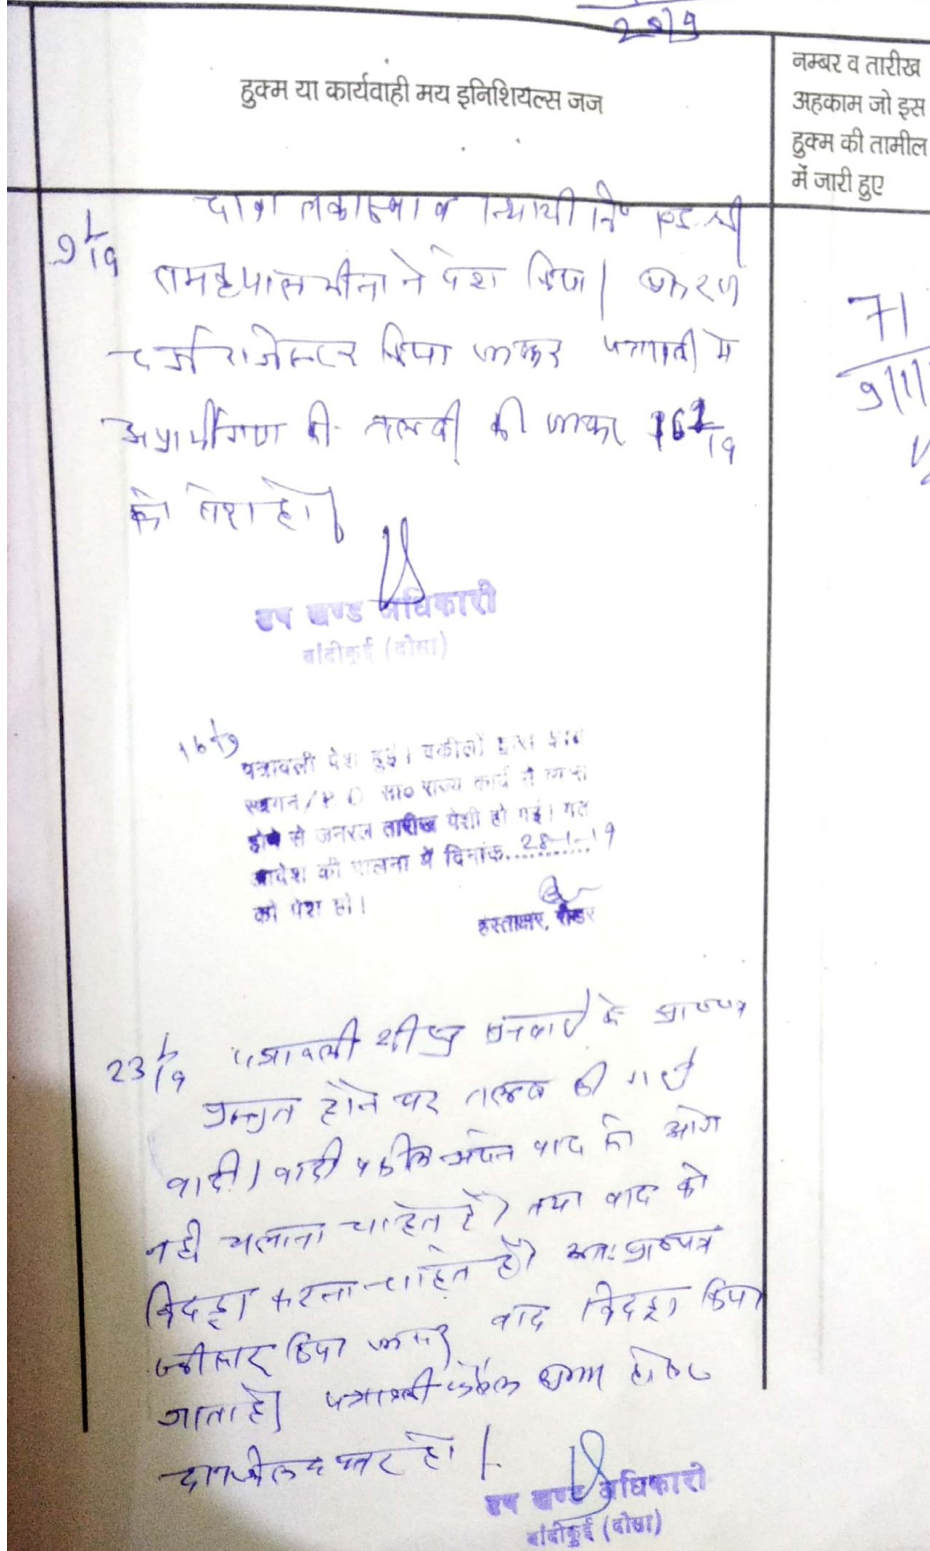 हुक्म या कार्यवाही मय इनिशियल्स जज
नम्बर व तारीख
अहकाम जो इस
हुक्म की तामील
में जारी हुए
9 1/19
ने पेश किया। प्रकरण
दर्ज रजिस्टर किया जाकर पत्रावली में
अप्रार्थीगण की तलबी की जाकर 16 1/19
को पेश हो।
71
उप खण्ड अधिकारी
बांदीकुई (दौसा)
16 1/19
पत्रावली पेश हुई। वकीलों द्वारा
स्थगन / P O सा० राज्य कार्य में
होने से जनरल तारीख पेशी हो गई। गत
आदेश की पालना में दिनांक 28-1-19
को पेश हो।
हस्ताक्षर, रीडर
23 1/19 पत्रावली शीघ्र सुनवाई के
प्रस्तुत होने पर तलब की गई
वादी। वादी वकील अपने वाद को आगे
नही चलाना चाहते है। तथा वाद को
विदड्रा करना चाहते है। अतः
स्वीकार किया जाकर वाद विदड्रा किया
जाता है। पत्रावली फैसल शुमार होकर
दाखिल दफ्तर हो।
उप खण्ड अधिकारी
बांदीकुई (दौसा)